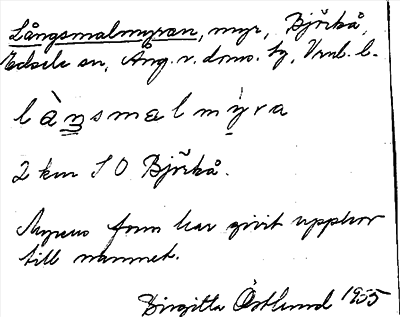 Långsmalmyran, myr, Björkå,
Edsele sn, Ång. v. doms. tg, Vnl. l.
l à n s m a l m ý r a
2 km SO Björkå.
Myrens form har givit upphov
till namnet.
Birgitta Östlund 1955